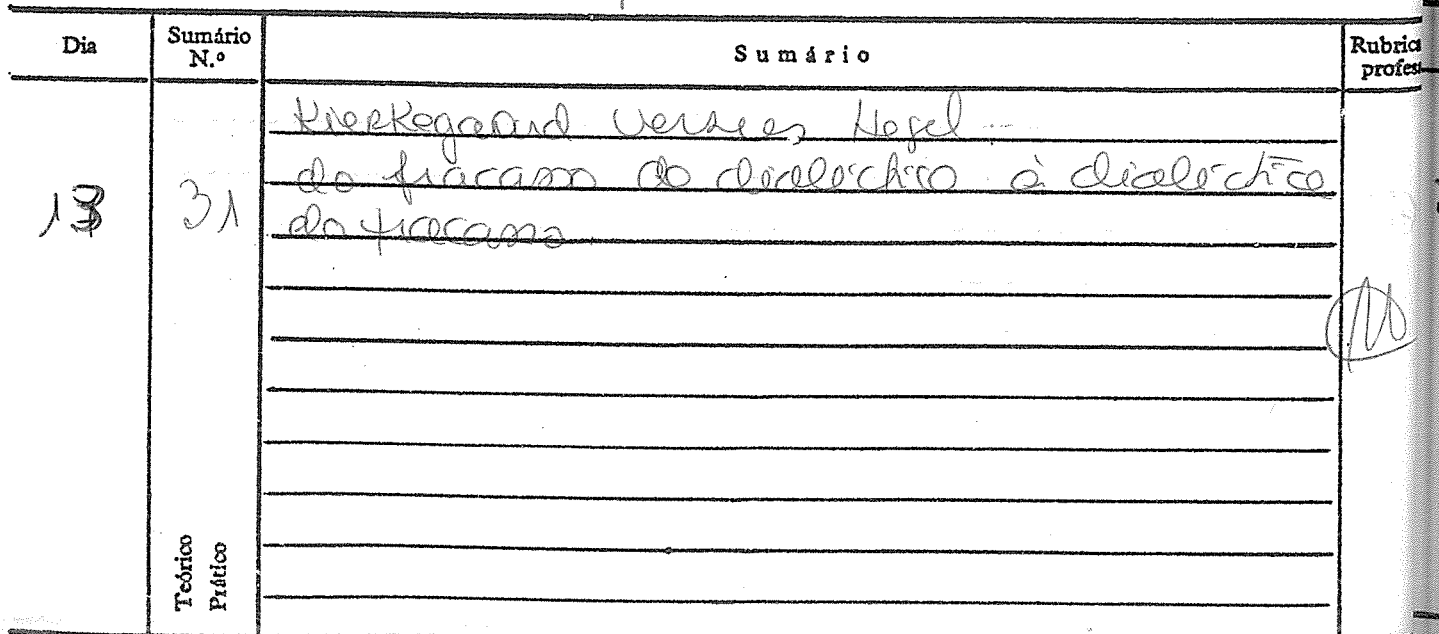 Dia
Sumário
N.º
Sumário
Rubrica
profes
Kierkegaard versus Hegel
do fracasso da dialéctica à dialéctica
do fracasso.
31
Teórico
Prático